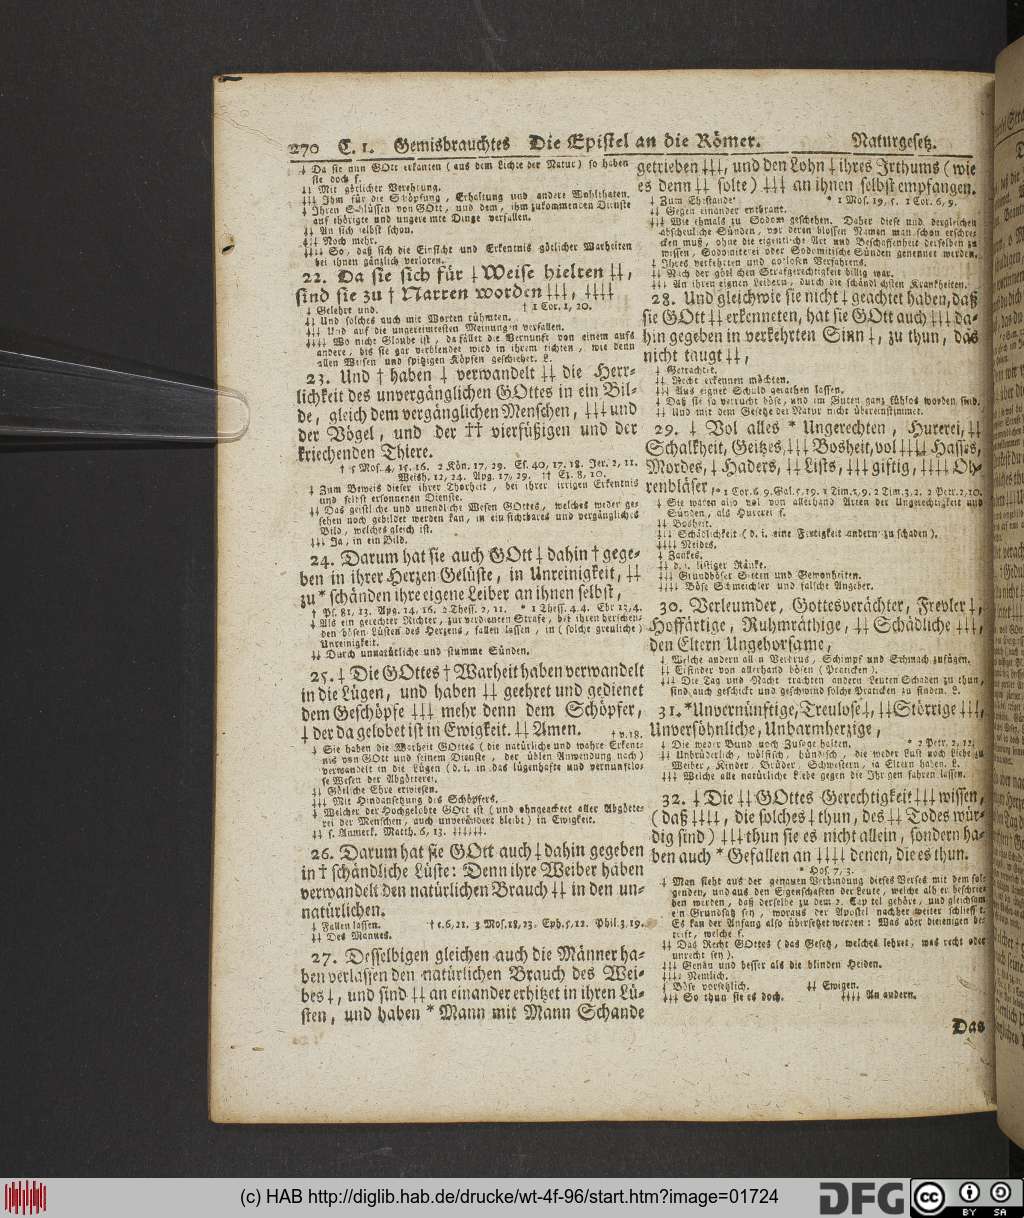 270 C. 1. Gemisbrauchtes Die Epistel an die Römer. Naturgesetz.
⸸ Da sie nun GOtt erkanten (aus dem Lichte der Natur) so haben
sie doch ꝛc.
⸸⸸ Mit götlicher Verehrung.
⸸⸸⸸ Ihm für die Schöpfung, Erhaltung und andere Wohlthaten.
⸸ Ihren Schlüssen von GOtt, und dem, ihm zukommenden Dienste
auf thörigte und ungereimte Dinge verfallen.
⸸⸸ An sich selbst schon.
⸸⸸⸸ Noch mehr.
⸸⸸⸸⸸ So, daß sich die Einsicht und Erkentnis götlicher Warheiten
bei ihnen gänzlich verloren.
22. Da sie sich für ⸸ Weise hielten ⸸⸸,
sind sie zu † Narren worden ⸸⸸⸸, ⸸⸸⸸⸸
⸸ Gelehrt und. † 1 Cor. 1, 20.
⸸⸸ Und solches auch mit Worten rühmten.
⸸⸸⸸ Und auf die ungereimtesten Meinungen verfallen.
⸸⸸⸸⸸ Wo nicht Glaube ist, da fället die Vernunft von einem aufs
andere, bis sie gar verblendet wird in ihrem tichten, wie denn
allen Weisen und spitzigen Köpfen geschiehet. L.
23. Und † haben ⸸ verwandelt ⸸⸸ die Herr-
lichkeit des unvergänglichen GOttes in ein Bil-
de, gleich dem vergänglichen Menschen, ⸸⸸⸸ und
der Vögel, und der †† vierfüßigen und der
kriechenden Thiere.
† 5 Mos. 4, 15. 16. 2 Kön. 17, 29. Es. 40, 17. 18. Jer. 2, 11.
Weish. 12, 24. Apg. 17, 29. †† Ez. 8, 10.
⸸ Zum Beweis dieser ihrer Thorheit, bei ihrer irrigen Erkentnis
und selbst ersonnenen Dienste.
⸸⸸ Das geistliche und unendliche Wesen GOttes, welches weder ge-
sehen noch gebildet werden kan, in ein sichtbares und vergängliches
Bild, welches gleich ist.
⸸⸸⸸ Ja, in ein Bild.
24. Darum hat sie auch GOtt ⸸ dahin † gege-
ben in ihrer Herzen Gelüste, in Unreinigkeit, ⸸⸸
zu * schänden ihre eigene Leiber an ihnen selbst,
† Ps. 81, 13. Apg. 14, 16. 2 Thess. 2, 11. * 1 Thess. 4. 4. Ebr 13, 4.
⸸ Als ein gerechter Richter, zur verdienten Strafe, bei ihren herschen-
den bösen Lüsten des Herzens, fallen lassen, in (solche greuliche)
Unreinigkeit.
⸸⸸ Durch unnatürliche und stumme Sünden.
25. ⸸ Die GOttes † Warheit haben verwandelt
in die Lügen, und haben ⸸⸸ geehret und gedienet
dem Geschöpfe ⸸⸸⸸ mehr denn dem Schöpfer,
⸸ der da gelobet ist in Ewigkeit. ⸸⸸ Amen. † v. 18.
⸸ Sie haben die Warheit GOttes (die natürliche und wahre Erkent-
nis von GOtt und seinem Dienste, der üblen Anwendung nach)
verwandelt in die Lügen (d. i. in das lügenhafte und vernunftlos
se Wesen der Abgötterei.
⸸⸸ Götliche Ehre erwiesen.
⸸⸸⸸ Mit Hindansetzung des Schöpfers.
⸸ Welcher der Hochgelobte GOtt ist (und ohngeachtet aller Abgötte-
rei der Menschen, auch unverändert bleibt) in Ewigkeit.
⸸⸸ s. Anmerk. Matth. 6, 13. ⸸⸸⸸⸸⸸⸸.
26. Darum hat sie GOtt auch ⸸ dahin gegeben
in † schändliche Lüste: Denn ihre Weiber haben
verwandelt den natürlichen Brauch ⸸⸸ in den un-
natürlichen.
⸸ Fallen lassen. † c. 6, 21. 3 Mos. 18, 23. Eph. 5, 12. Phil. 3, 19.
⸸⸸ Des Mannes.
27. Desselbigen gleichen auch die Männer ha-
ben verlassen den natürlichen Brauch des Wei-
bes ⸸, und sind ⸸⸸ an einander erhitzet in ihren Lü-
sten, und haben * Mann mit Mann Schande
getrieben ⸸⸸⸸, und den Lohn ⸸ ihres Irthums (wie
es denn ⸸⸸ solte) ⸸⸸⸸ an ihnen selbst empfangen.
⸸ Zum Ehestande. * 1 Mos. 19, 5. 1 Cor. 6, 9.
⸸⸸ Gegen einander entbrant.
⸸⸸⸸ Wie ehmals zu Sodom geschehen. Daher diese und dergleichen
abscheuliche Sünden, vor deren blossen Namen man schon erschre-
cken muß, ohne die eigentliche Art und Beschaffenheit derselben zu
wissen, Sodomiterei oder Sodomitische Sünden genennet werden.
⸸ Ihres verkehrten und gotlosen Verfahrens.
⸸⸸ Nach der götlichen Strafgerechtigkeit billig war.
⸸⸸⸸ An ihren eignen Leibern, durch die schändlichsten Krankheiten.
28. Und gleichwie sie nicht ⸸ geachtet haben, daß
sie GOtt ⸸⸸ erkenneten, hat sie GOtt auch ⸸⸸⸸ da-
hin gegeben in verkehrten Sinn ⸸, zu thun, das
nicht taugt ⸸⸸,
⸸ Getrachtet.
⸸⸸ Recht erkennen möchten.
⸸⸸⸸ Aus eigner Schuld gerathen lassen.
⸸ Daß sie so verrucht böse, und im Guten ganz fühllos worden sind.
⸸⸸ Und mit dem Gesetze der Natur nicht übereinstimmet.
29. ⸸ Vol alles * Ungerechten, Hurerei, ⸸⸸
Schalkheit, Geitzes, ⸸⸸⸸ Bosheit, vol ⸸⸸⸸⸸ Hasses,
Mordes, ⸸ Haders, ⸸⸸ Lists, ⸸⸸⸸ giftig, ⸸⸸⸸⸸ Oh-
renbläser, * 1 Cor. 6, 9. Gal. 5, 19. 1 Tim. 1, 9. 2 Tim. 3, 2. 2 Petr. 2, 10.
⸸ Sie waren also vol von allerhand Arten der Ungerechtigkeit und
Sünden, als Hurerei ꝛc.
⸸⸸ Bosheit.
⸸⸸⸸ Schädlichkeit (d. i. eine Fertigkeit andern zu schaden).
⸸⸸⸸⸸ Neides.
⸸ Zankes.
⸸⸸ d. i. listiger Ränke.
⸸⸸⸸ Grundböser Sitten und Gewonheiten.
⸸⸸⸸⸸ Böse Schmeichler und falsche Angeber.
30. Verleumder, Gottesverächter, Frevler ⸸,
Hoffärtige, Ruhmräthige, ⸸⸸ Schädliche ⸸⸸⸸,
den Eltern Ungehorsame,
⸸ Welche andern allen Verdrus, Schimpf und Schmach zufügen.
⸸⸸ Erfinder von allerhand bösen (Practicken).
⸸⸸⸸ Die Tag und Nacht trachten andern Leuten Schaden zu thun,
sind auch geschickt und geschwind solche Practicken zu finden. L.
31. * Unvernünftige, Treulose ⸸, ⸸⸸ Störrige ⸸⸸⸸,
Unversöhnliche, Unbarmherzige,
⸸ Die weder Bund noch Zusage halten. * 2 Petr. 2, 12.
⸸⸸ Unbrüderlich, wölfisch, hündisch, die weder Lust noch Liebe zu
Weiber, Kinder, Brüder, Schwestern, ja Eltern haben. L.
⸸⸸⸸ Welche alle natürliche Liebe gegen die Ihrigen fahren lassen.
32. ⸸ Die ⸸⸸ GOttes Gerechtigkeit ⸸⸸⸸ wissen,
(daß ⸸⸸⸸⸸, die solches ⸸ thun, des ⸸⸸ Todes wür-
dig sind) ⸸⸸⸸ thun sie es nicht allein, sondern ha-
ben auch * Gefallen an ⸸⸸⸸⸸ denen, die es thun.
* Hos. 7, 3.
⸸ Man sieht aus der genauen Verbindung dieses Verses mit dem folg
genden, und aus den Eigenschaften der Leute, welche alhier beschrie-
ben werden, daß derselbe zu dem 2. Captel gehöre, und gleichsam
ein Grundsatz sey, woraus der Apostel nachher weiter schliesst.
Es kan der Anfang also übersetzet werden: Was aber diejenigen be-
trift, welche ꝛc.
⸸⸸ Das Recht GOttes (das Gesetz, welches lehret, was recht oder
unrecht sey).
⸸⸸⸸ Genau und besser als die blinden Heiden.
⸸⸸⸸⸸ Nemlich.
⸸ Böse vorsetzlich. ⸸⸸ Ewigen.
⸸⸸⸸ So thun sie es doch. ⸸⸸⸸⸸ An andern.
Das
(c) HAB http://diglib.hab.de/drucke/wt-4f-96/start.htm?image=01724
DFG
cc BY SA